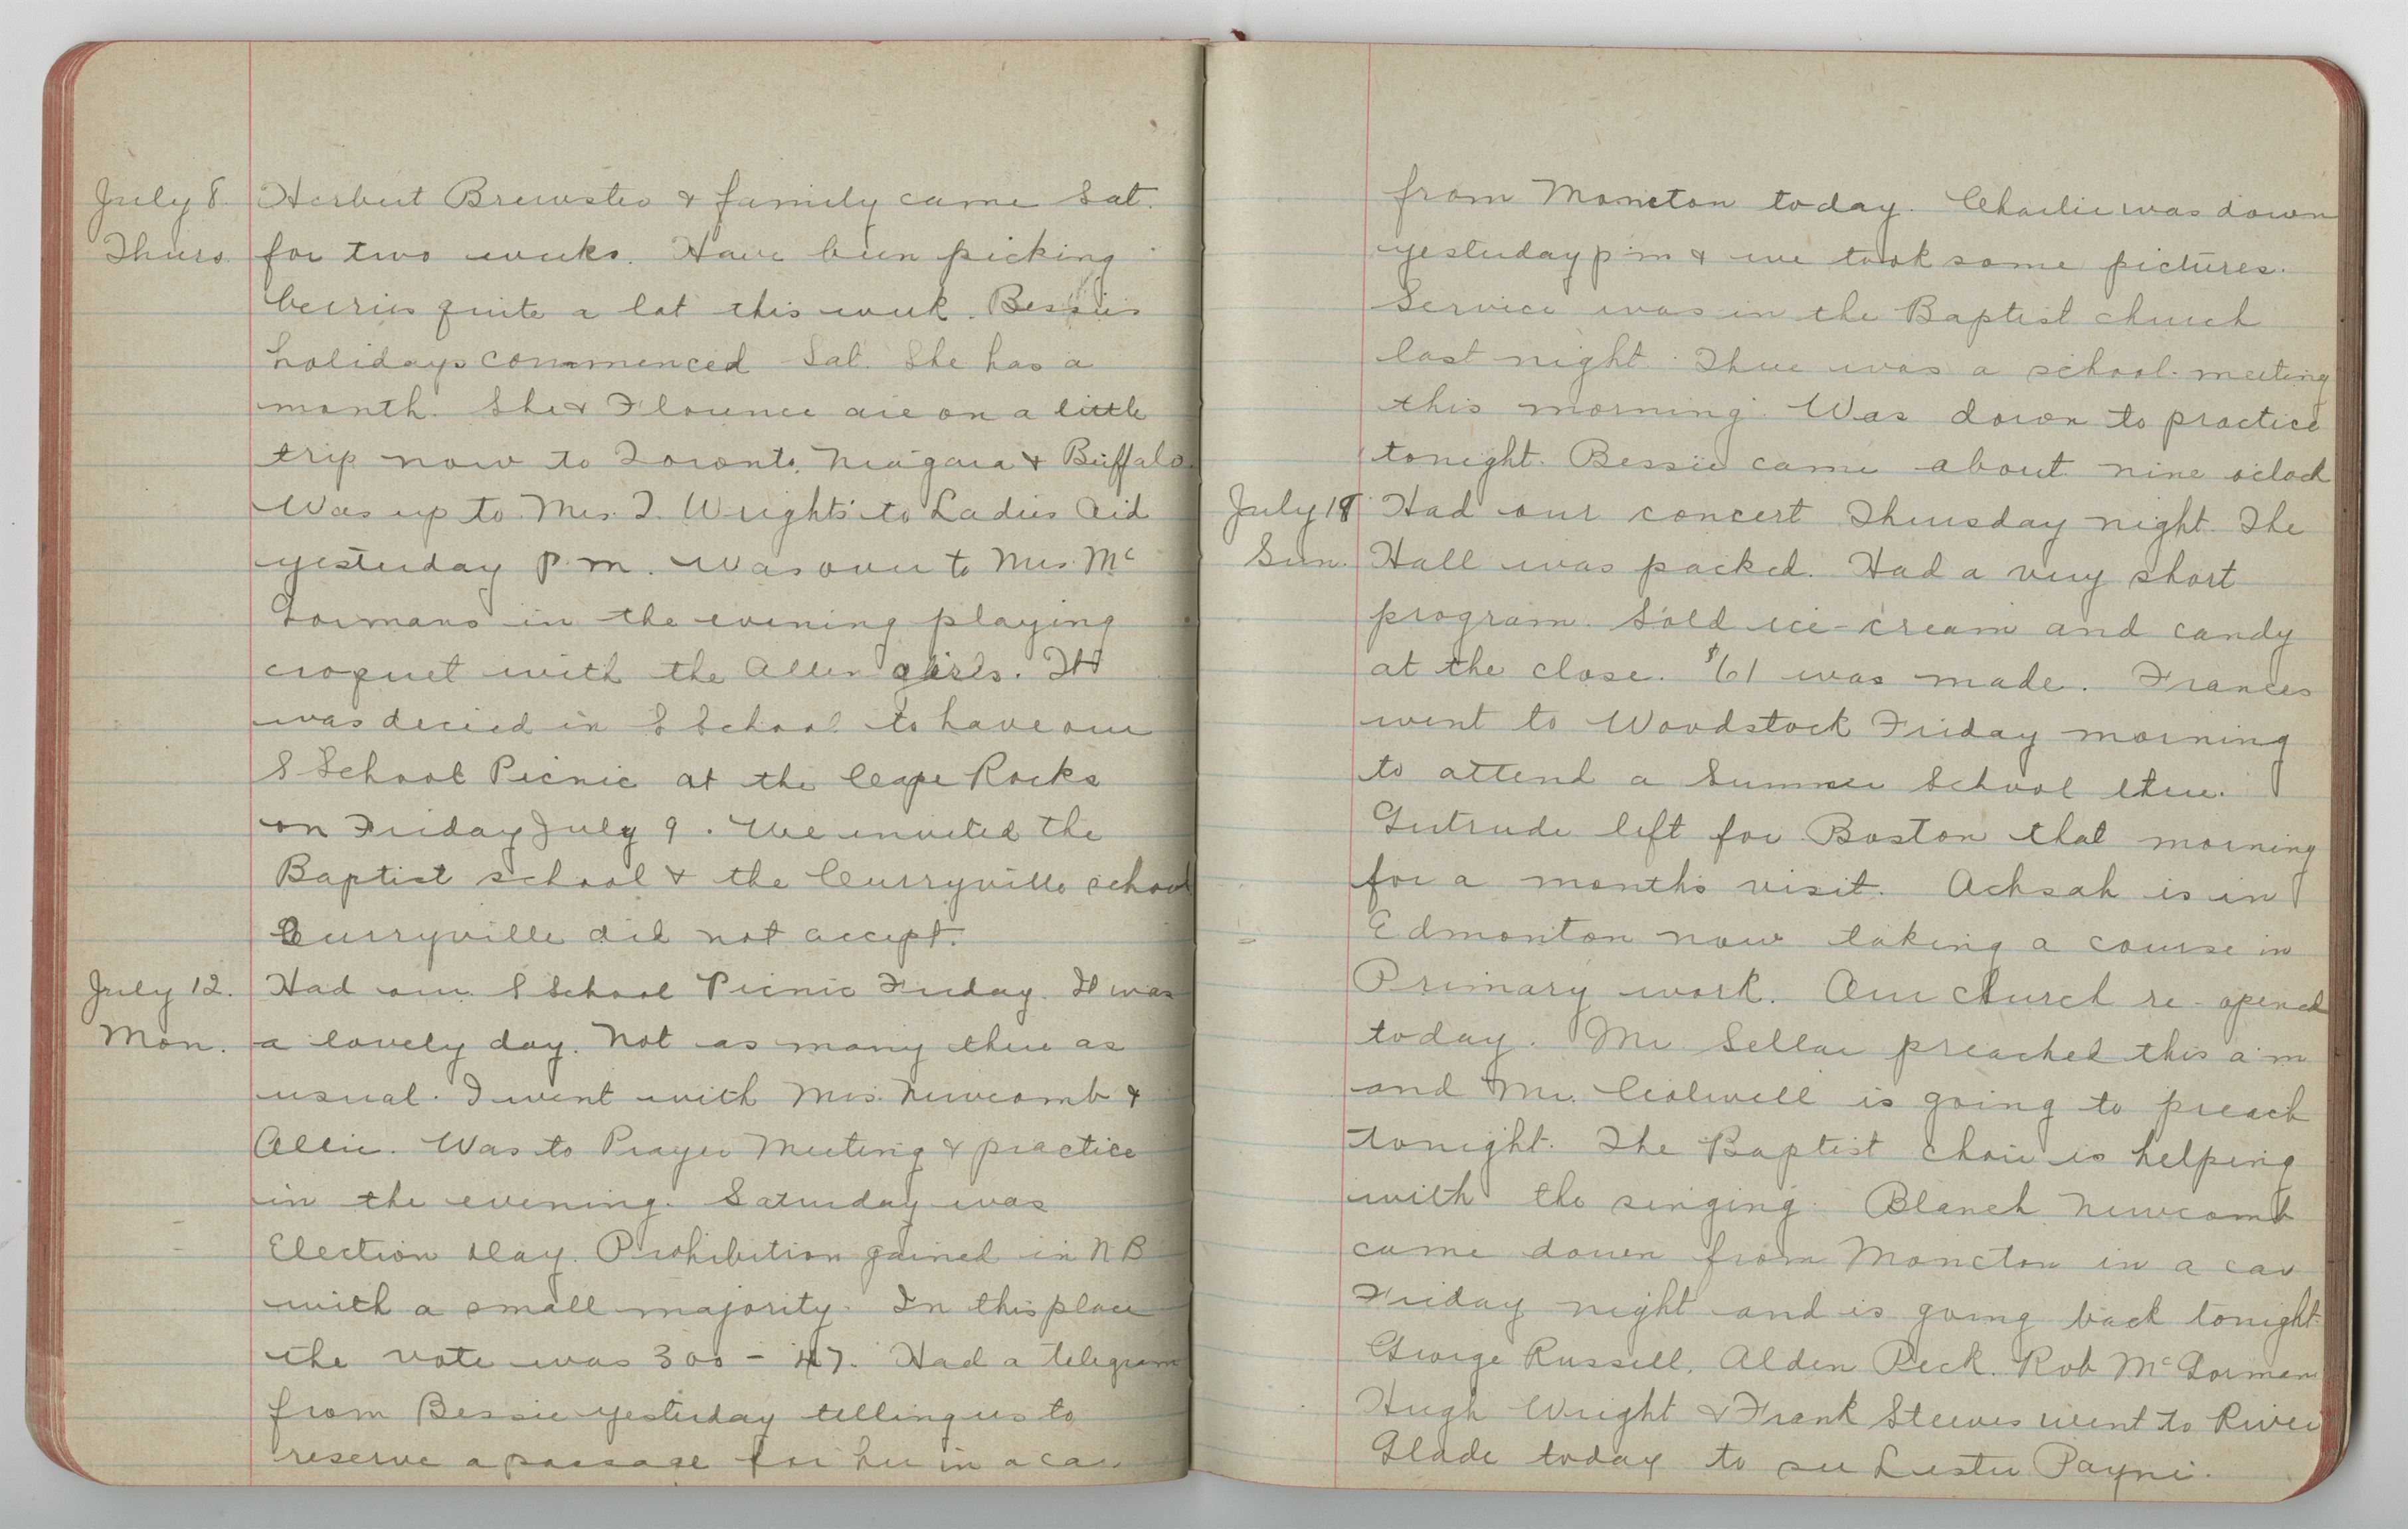 July 8. Herbert Brewster & family came Sat.
Thurs. for two weeks. Have been picking
berries quite a lot this week. Bessie's
holidays commenced Sat. She has a
month. She & Florence are on a little
trip now to Toronto, Niagara & Buffalo.
Was up to Mrs. I. Wrights' to Ladies Aid
yesterday p.m. was over to Mrs. Mc
Gormans in the evening playing
croquet with the Allen girls. It
was decied in S School to have our
S School Picnic at the Cape Rocks
on Friday July 9. We invited the
Baptist school & the Curryville school
Curryville did not accept.
July 12. Had our S School Picnic Friday. It was
Mon. a lovely day. Not as many there as
usual. I went with Mrs. Newcomb &
Allie. Was to Prayer Meeting & practice
in the evening. Saturday was
Election Day. Prohibition gained in N B
with a small majority. In this place
the vote was 300 - 47. Had a telegram
from Bessie yesterday telling us to
reserve a passage for her in a car
from Moncton today. Charlie was down
yesterday p m & we took some pictures.
Service was in the Baptist church
last night. There was a school-meeting
this morning. Was down to practice
tonight. Bessie came about nine oclock
July 18 Had our concert Thursday night. The
Sun. Hall was packed. Had a very short
program. Sold ice-cream and candy
at the close. $61 was made. Frances
went to Woodstock Friday morning
to attend a Summer School there.
Gertrude left for Boston that morning
for a month's visit. Achsah is in
Edmonton now taking a course in
Primary work. Our church re-opened
today. Mr Sellar preached this a.m
and Mr. Colwell is going to preach
tonight. The Baptist choir is helping
with the singing. Blanch Newcomb
came down from Moncton in a car
Friday night and is going back tonight.
George Russell, Alden Peck, Rob McGorman
Hugh Wright & Frank Steeves went to River
Glade today to see Lester Payne.